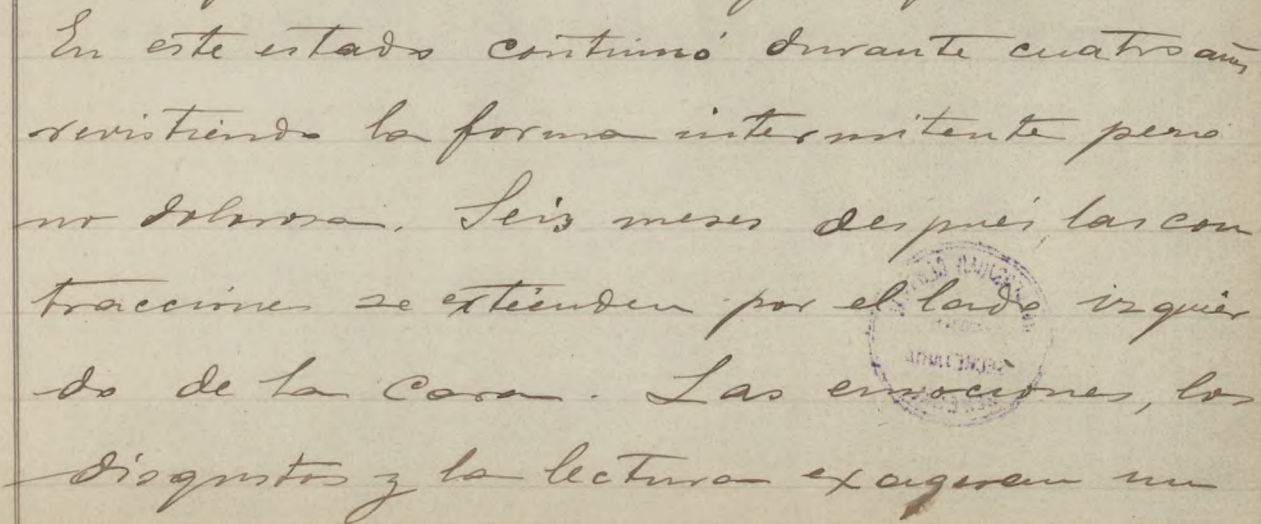 En este estado continuó durante cuatro años
revistiendo la forma intermitente pero
no dolorosa. Seis meses después las con
tracciones se extienden por el lado izquier
do de la cara. Las emociones, los
disgustos y la lectura exageran un